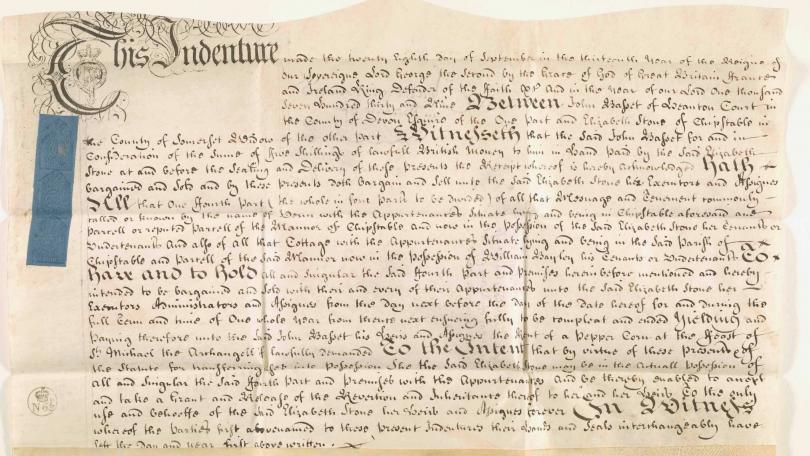 This Indenture made the twenty Eighth day of September in the thirteenth Year of the Reigne of
our Sovereigne Lord George the Second by the Grace of God of Great Britain France
and Ireland King Defender of the Faith &c And in the year of our Lord One thousand
Seven hundred thirty and Nine Between John Basset of Heanton Court in
the County of Devon Esquire of the One part and Elizabeth Stone of Chipstable in
the County of Somerset Widow of the other part Witnesseth that the Said John Basset for and in
Consideration of the Sume of Five Shillings of lawfull British Money to him in hand paid by the Said Elizabeth
Stone at and before the Sealing and Delivery of these presents the Receipt whereof is hereby acknowledged Hath
bargained and Sold and by these presents doth bargain and Sell unto the Said Elizabeth Stone her Executors and Assignes
All that One Fourth Part (the whole in four parts to be divided) of all that Messuage and Tenement commonly
called or known by the name of with the Appurtenances Situate lying and being in Chipstable aforesaid and
parcell or reputed parcell of the Mannor of Chipstable and now in the possession of the Said Elizabeth Stone her Tenants or
Undertenants And also of all that Cottage with the Appurtenances Situate lying and being in the Said parish of
Chipstable and parcell of the Said Mannor now in the possession of William his Tenants or Undertenants To
Have and to Hold all and Singular the Said Fourth part and premises herein before mentioned and hereby
intended to be bargained and Sold with their and every of their Appurtenances unto the Said Elizabeth Stone her
Executors Administrators and Assignes from the day next before the day of the date hereof for and during the
full Term and time of One whole Year from thence next ensuing fully to be compleat and ended Yielding and
paying therefore unto the Said John Basset his Heirs and Assignes the Rent of a Pepper Corn at the Feast of
St Michael the Archangell if lawfully demanded To the Intent that by virtue of these presents & of
the Statute for transferring Uses into possession She the Said Elizabeth Stone may be in the Actuall possession of
All and Singular the Said Fourth Part and Premises with the Appurtenances And be thereby enabled to accept
and take a Grant and Release of the Reversion and Inheritance thereof to her and her Heirs To the only
use and behoofe of the Said Elizabeth Stone her Heirs and Assignes forever In Witness
whereof the Parties first abovenamed to these present Indentures their hands and Seals interchangeably have
Sett the Day and year first above written.